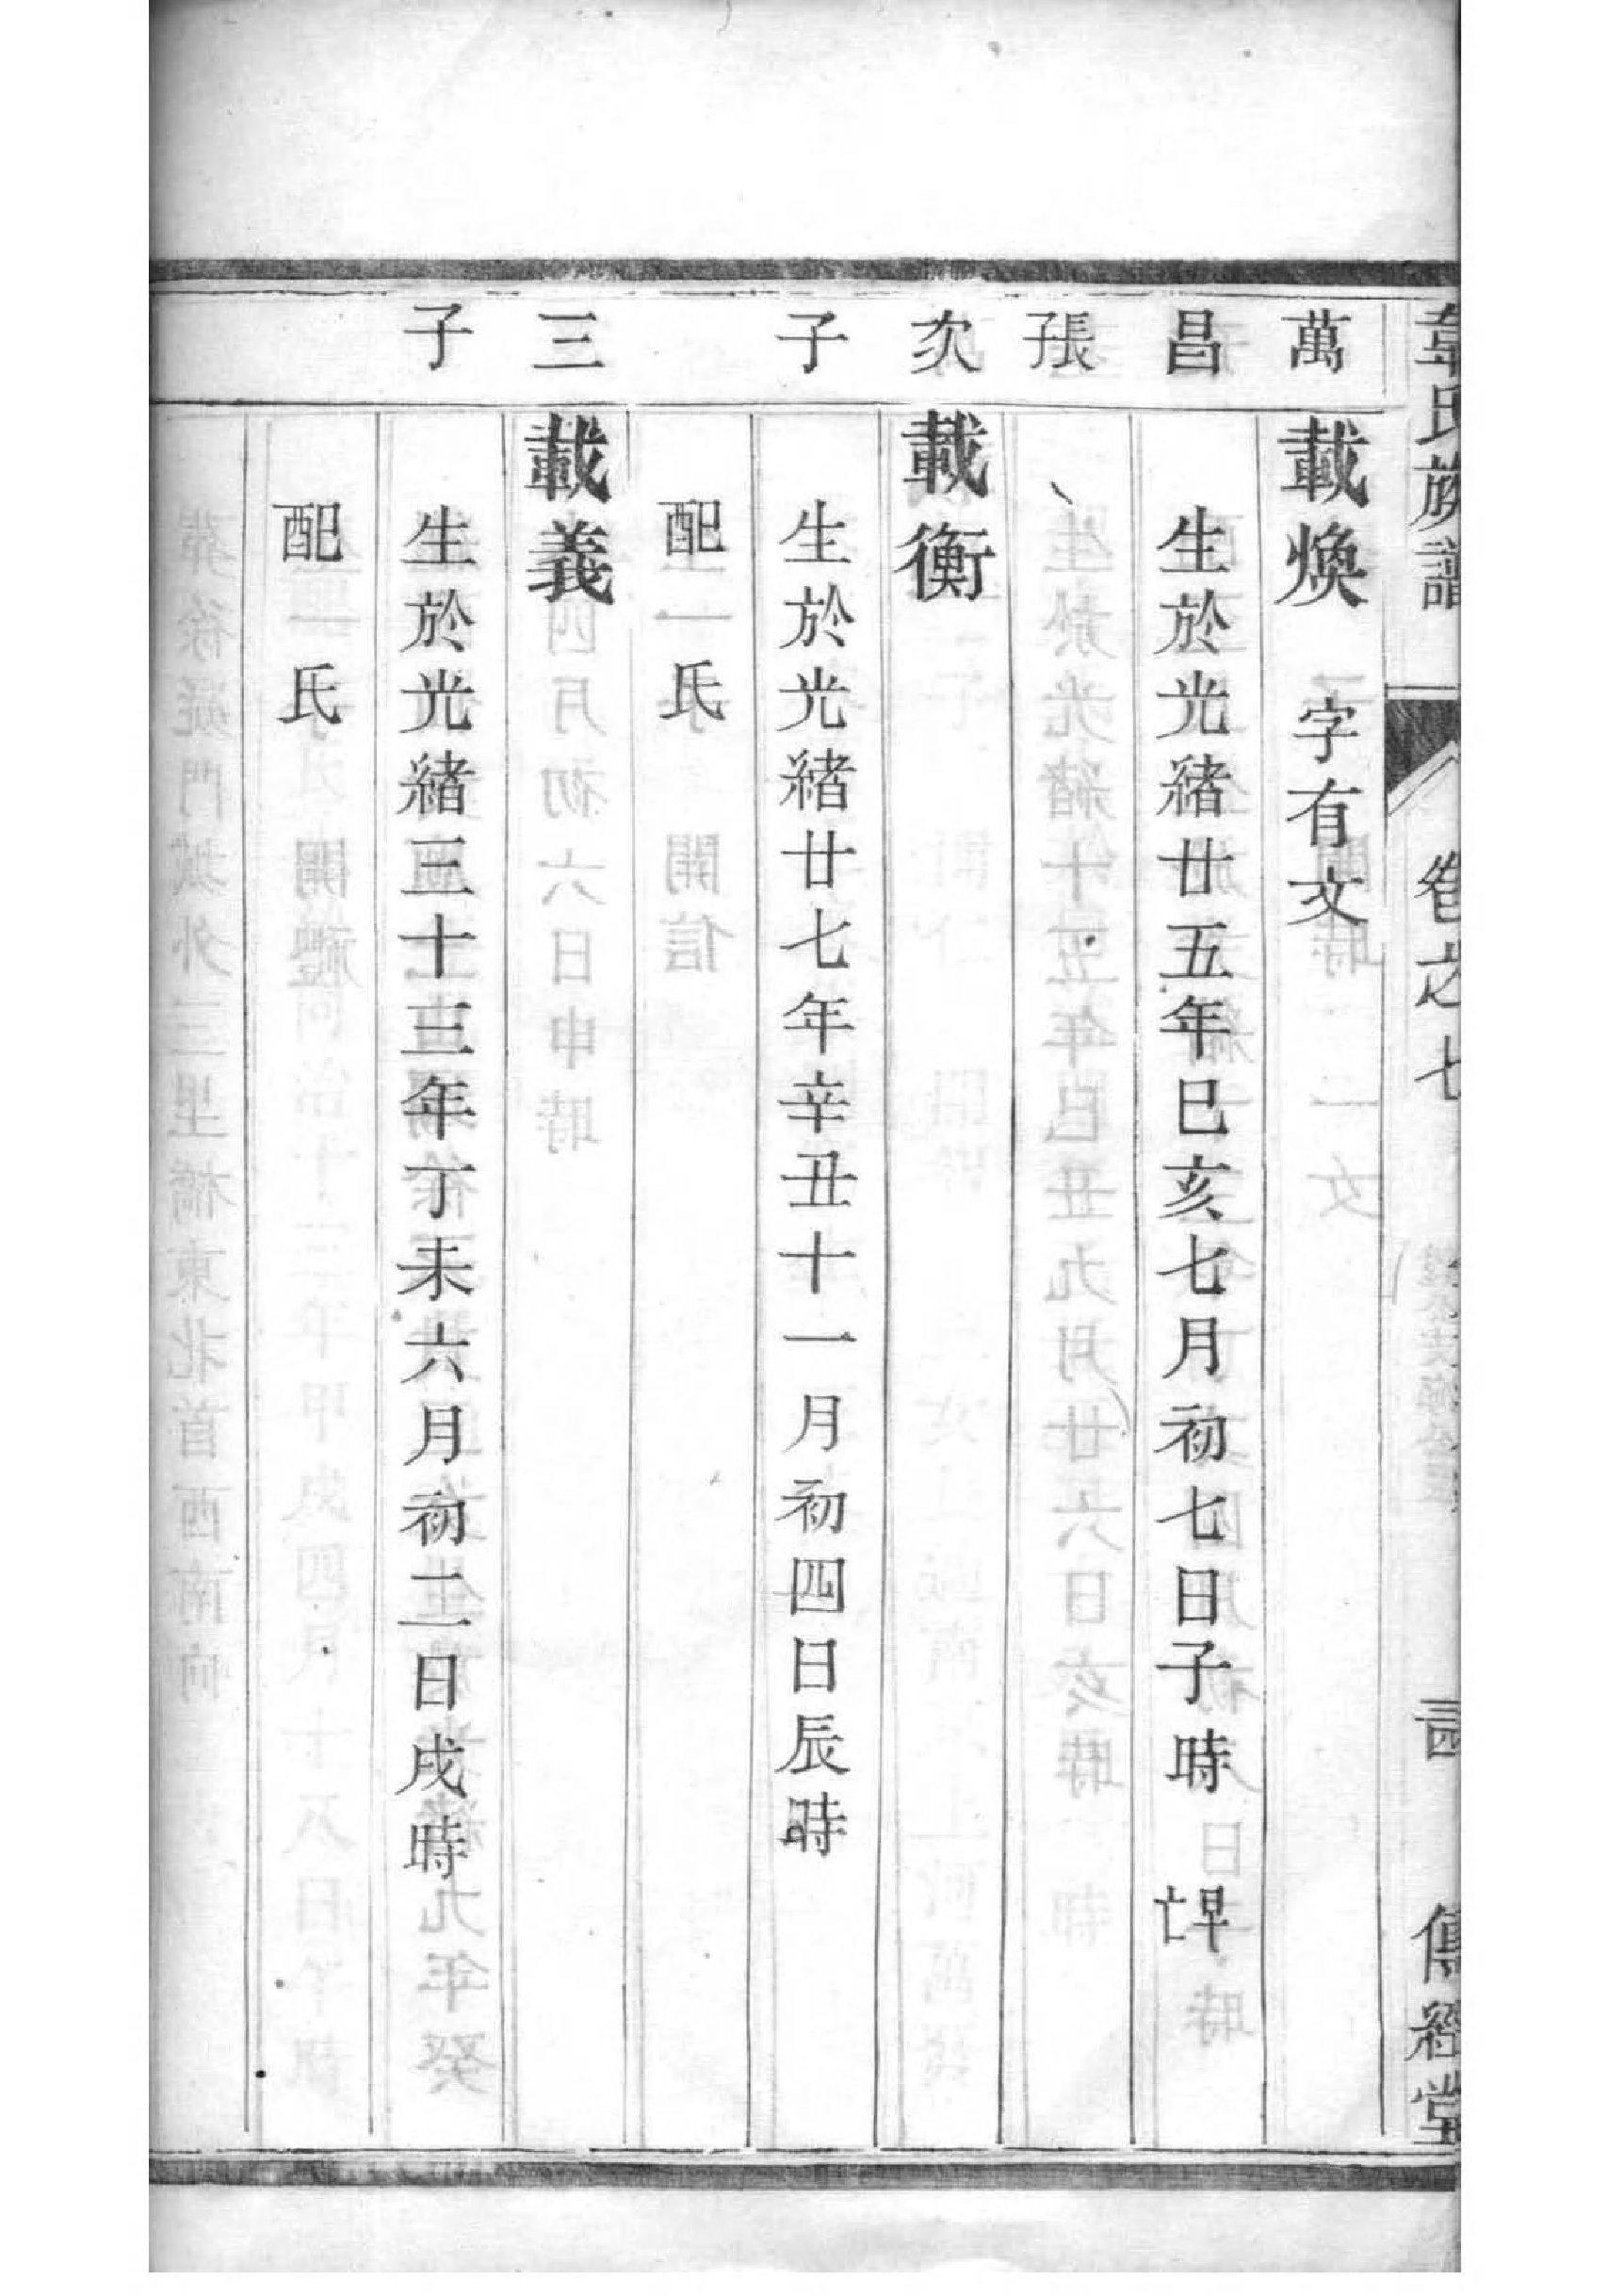 韋氏族譜 卷之七 傳經堂
萬 載煥 字有文
昌 生於光緒廿五年巳亥七月初七日子時 早亡
長子
次 載衡
子 生於光緒廿七年辛丑十一月初四日辰時
配 氏
三 載義
子 生於光緒三十三年丁未六月初二日戌時
配 氏